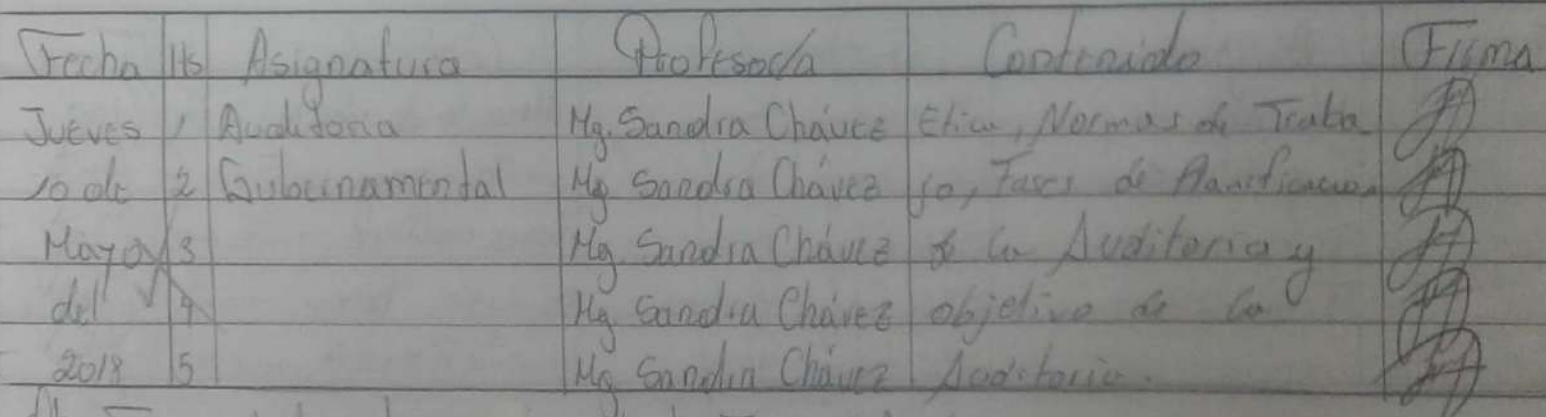 Fecha Hs Asignatura Profesor/a Contenido Firma
Jueves 1 Auditoria Mg. Sandra Chávez Etica, Normas de Traba
10 de 2 Gubernamental Mg Sandra Chávez jo, Fases de Planificacion
Mayo 3 Mg. Sandra Chávez de la Auditoria y
del 4 Mg Sandra Chávez objetivo de la
2018 5 Mg Sandra Chávez Auditoria.